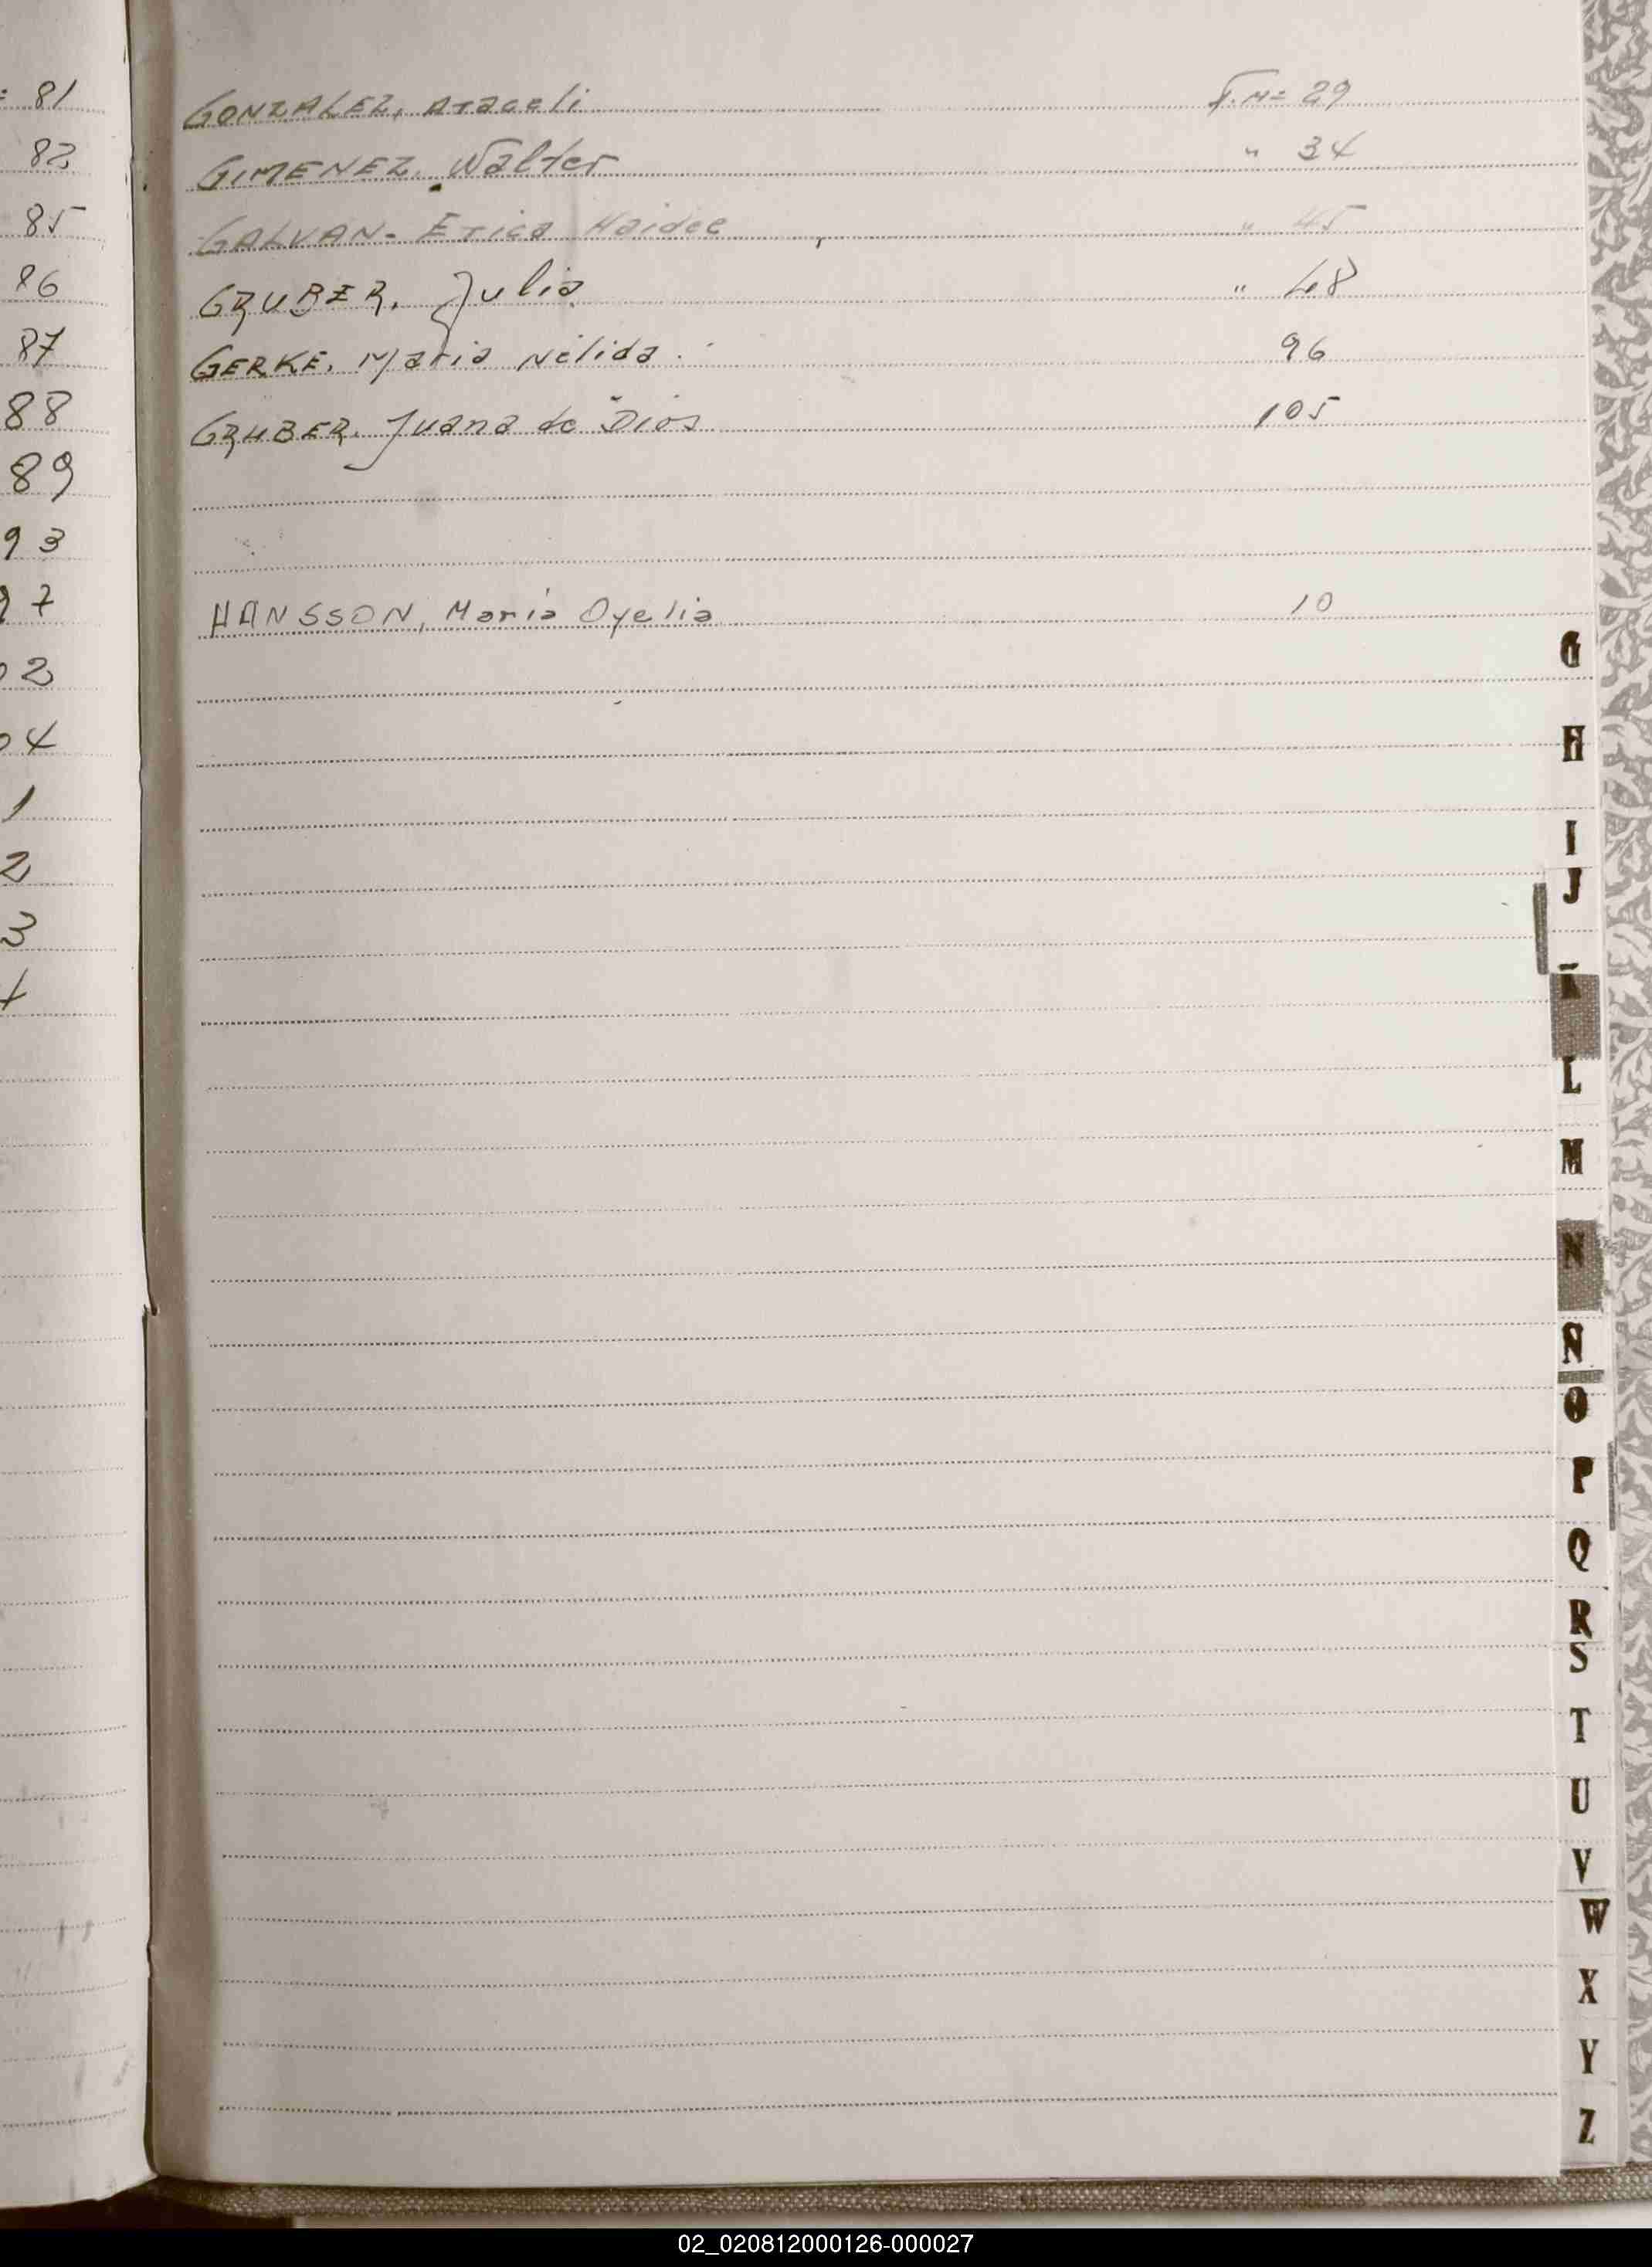 81
82
85
86
87
88
89
93
97
02
04
1
2
3
4
GONZALEZ, Araceli F.M= 29
GIMENEZ. Walter " 34
GALVAN- Erica Haidee " 45
GRUBER. Julia " 48
GERKE. Maria Nélida. 96
GRUBER. Juana de Dios 105
HANSSON, María Oyelia 10
G
H
I
J
K
L
M
N
Ñ
O
P
Q
R
S
T
U
V
W
X
Y
Z
02_020812000126-000027